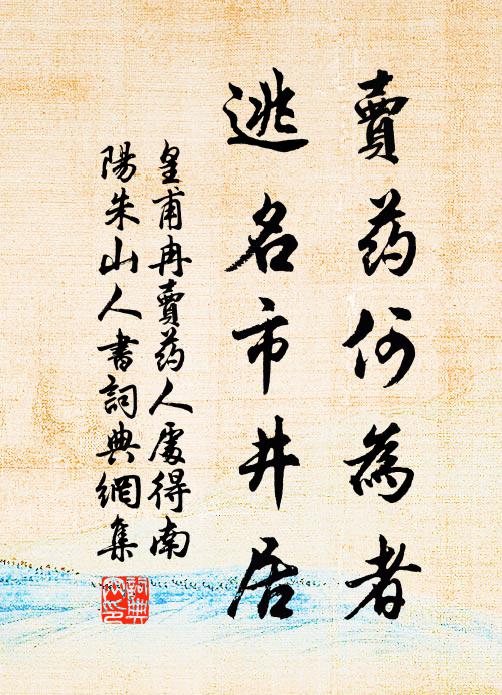 賣药何為者
逃名市井居
皇甫冉賣药人處得南
陽朱山人書詞典網集